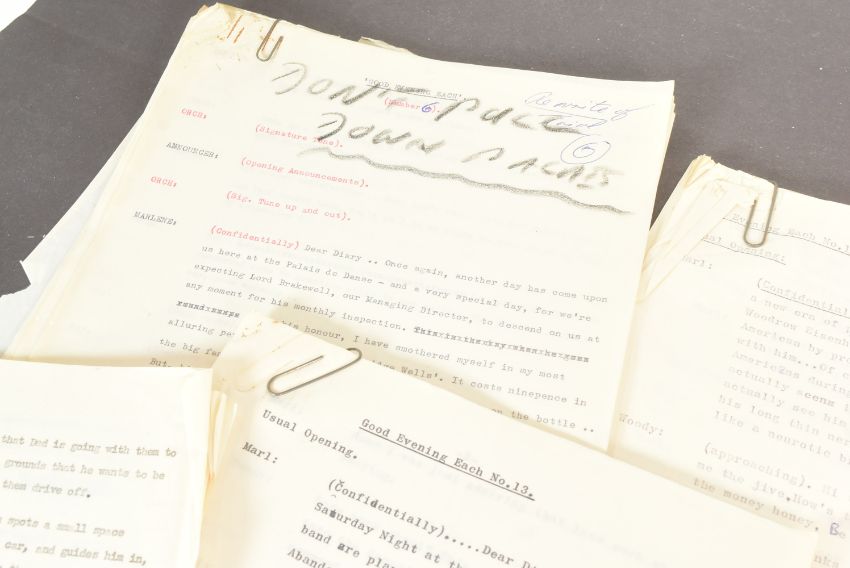 'GOOD EVENING EACH'
(Number 6).
DON'T PULL
DOWN PALAIS
Rewrite of
6
ORCH:
(Signature Tune).
ANNOUNCER:
(Opening Announcements).
ORCH:
(Sig. Tune up and out).
MARLENE:
(Confidentially) Dear Diary .. Once again, another day has come upon
us here at the Palais de Danse - and a very special day, for we're
expecting Lord Brakewell, our Managing Director, to descend on us at
any moment for his monthly inspection.
alluring his honour, I have smothered myself in my most
the big Wells'. It costs ninepence in
But on the bottle ..
Evening Each No.1
Usual Opening:
Marl:
(Confidential
a new era of
Woodrow Eisenh
American by pro
with him...Of c
Americans during
actually seeing
actually see him
his long thin ner
like a neurotic b
Woody:
(approaching). Hi
me the jive.How's
the money honey. Be
nks
that Dad is going with them to
grounds that he wants to be
them drive off.
spots a small space
car, and guides him in,
Good Evening Each No.13.
Usual Opening.
Marl:
(Confidentially).....Dear Di
Saturday Night at th
band are pla
Aband